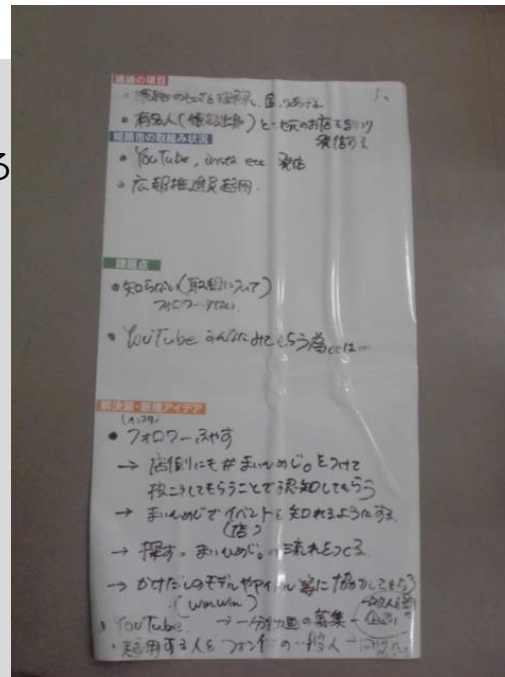 る
提案の項目
・姫路の
・有名人(姫路出身)と地元のお店を
発信する
姫路市の取組み状況
・YouTube, insta etc 発信
・広報推進員起用.
課題点
・知らない(取組について)
フォロワー
・YouTube みんなみてもらう為には…
解決策・新規アイデア
(インスタ)
・フォロワーふやす
→ 店側にも#まいひめじ。をつけて
投こうしてもらうことで認知してもらう
→ まいひめじでイベントを知れるようにする
(店)
→ 探す。まいひめじ。の流れをつくる
→ かけだしのモデルやアイドル等に協力してもらう
(winwin)
・YouTube. → 一分動画の募集
・起用する人を 一般人